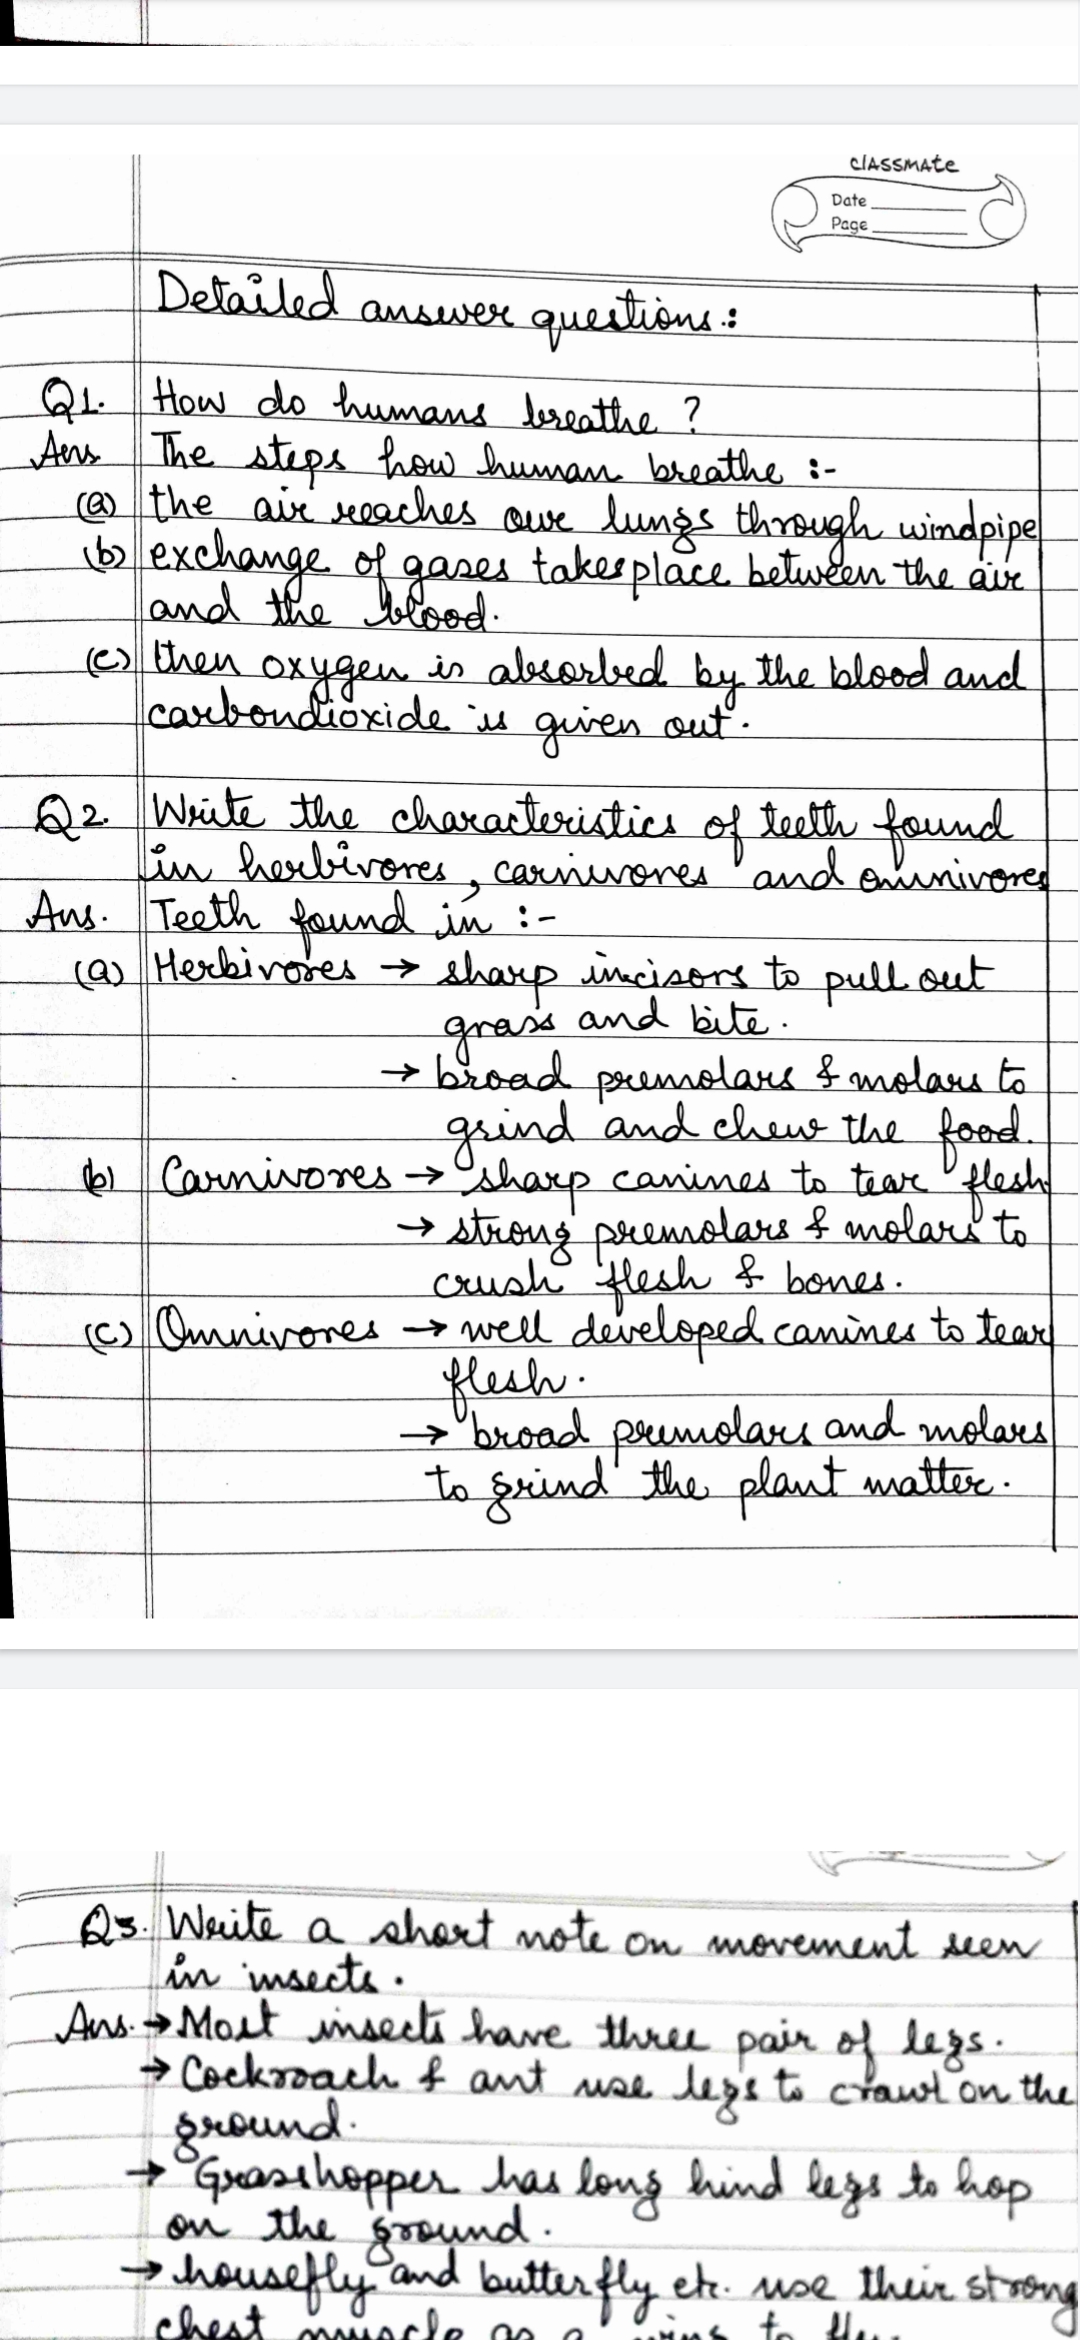 classmate
Date
Page
Detailed answer questions :
Q1. How do humans breathe ?
Ans The steps how human breathe :-
(a) the air reaches our lungs through windpipe
(b) exchange of gases takes place between the air
and the blood.
(c) then oxygen is absorbed by the blood and
carbondioxide is given out.
Q2. Write the characteristics of teeth found
in herbivores, carnivores and omnivores
Ans. Teeth found in :-
(a) Herbivores → sharp incisors to pull out
grass and bite.
→ broad premolars & molars to
grind and chew the food.
(b) Carnivores → sharp canines to tear flesh
→ strong premolars & molars to
crush flesh & bones.
(c) Omnivores → well developed canines to tear
flesh.
→ broad premolars and molars
to grind the plant matter.
Q3. Write a short note on movement seen
in insects.
Ans. → Most insects have three pair of legs.
→ Cockroach & ant use legs to crawl on the
ground.
→ Grasshopper has long hind legs to hop
on the ground.
→ housefly and butterfly etc. use their strong
chest muscle as a wing to